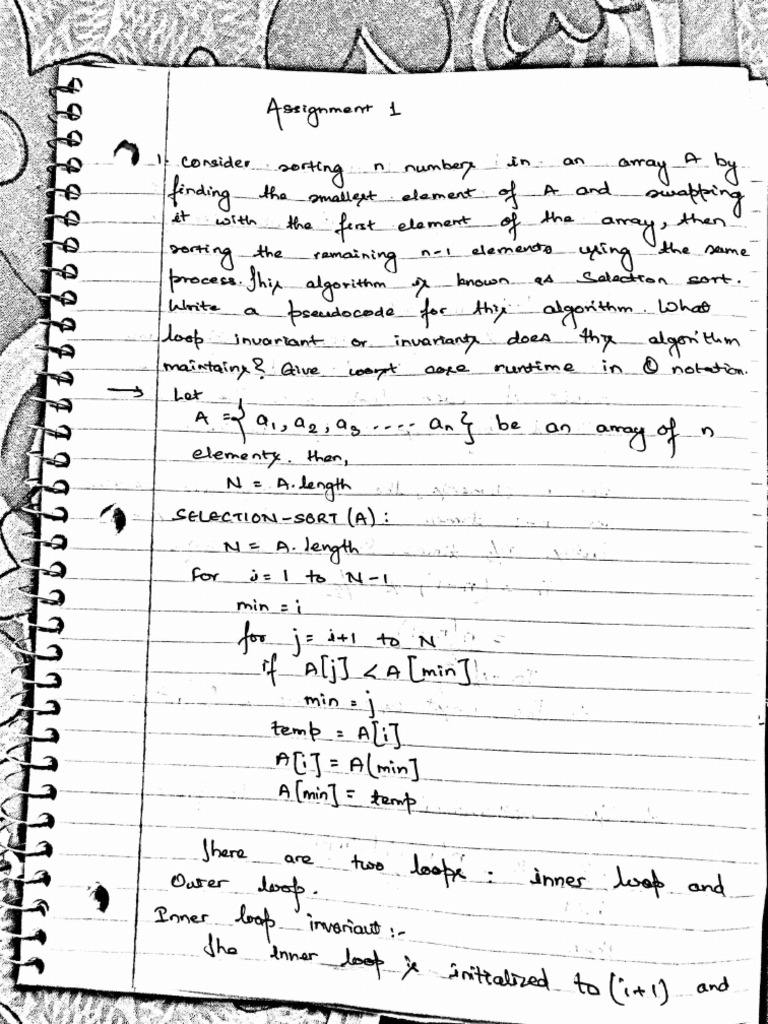 Assignment 1
1. Consider sorting n numbers in an array A by
finding the smallest element of A and swapping
it with the first element of the array, then
sorting the remaining n-1 elements using the same
process. This algorithm is known as Selection sort.
Write a pseudocode for this algorithm. What
loop invariant or invariants does this algorithm
maintains? Give worst case runtime in Θ notation.
→ Let
A = { a1, a2, a3 .... an } be an array of n
elements. then,
N = A.length
SELECTION-SORT (A) :
N = A.length
For i = 1 to N-1
min = i
for j = i+1 to N
if A[j] < A[min]
min = j
temp = A[i]
A[i] = A[min]
A[min] = temp
There are two loops : inner loop and
Outer loop.
Inner loop invariant :-
The inner loop is initialized to (i+1) and